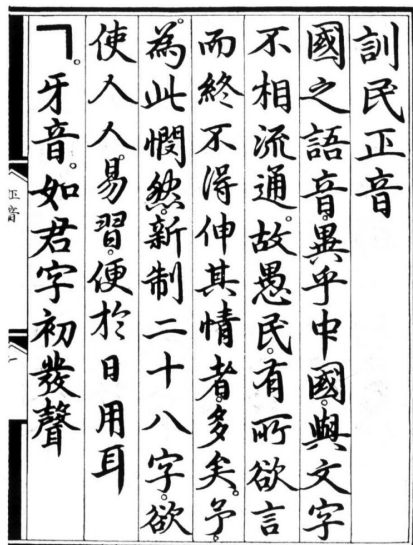 訓民正音
國之語音。異乎中國。與文字
不相流通。故愚民。有所欲言
而終不得伸其情者。多矣。予。
為此憫然。新制二十八字。欲
使人人易習。便於日用耳
ㄱ。牙音。如君字初發聲
正音
一